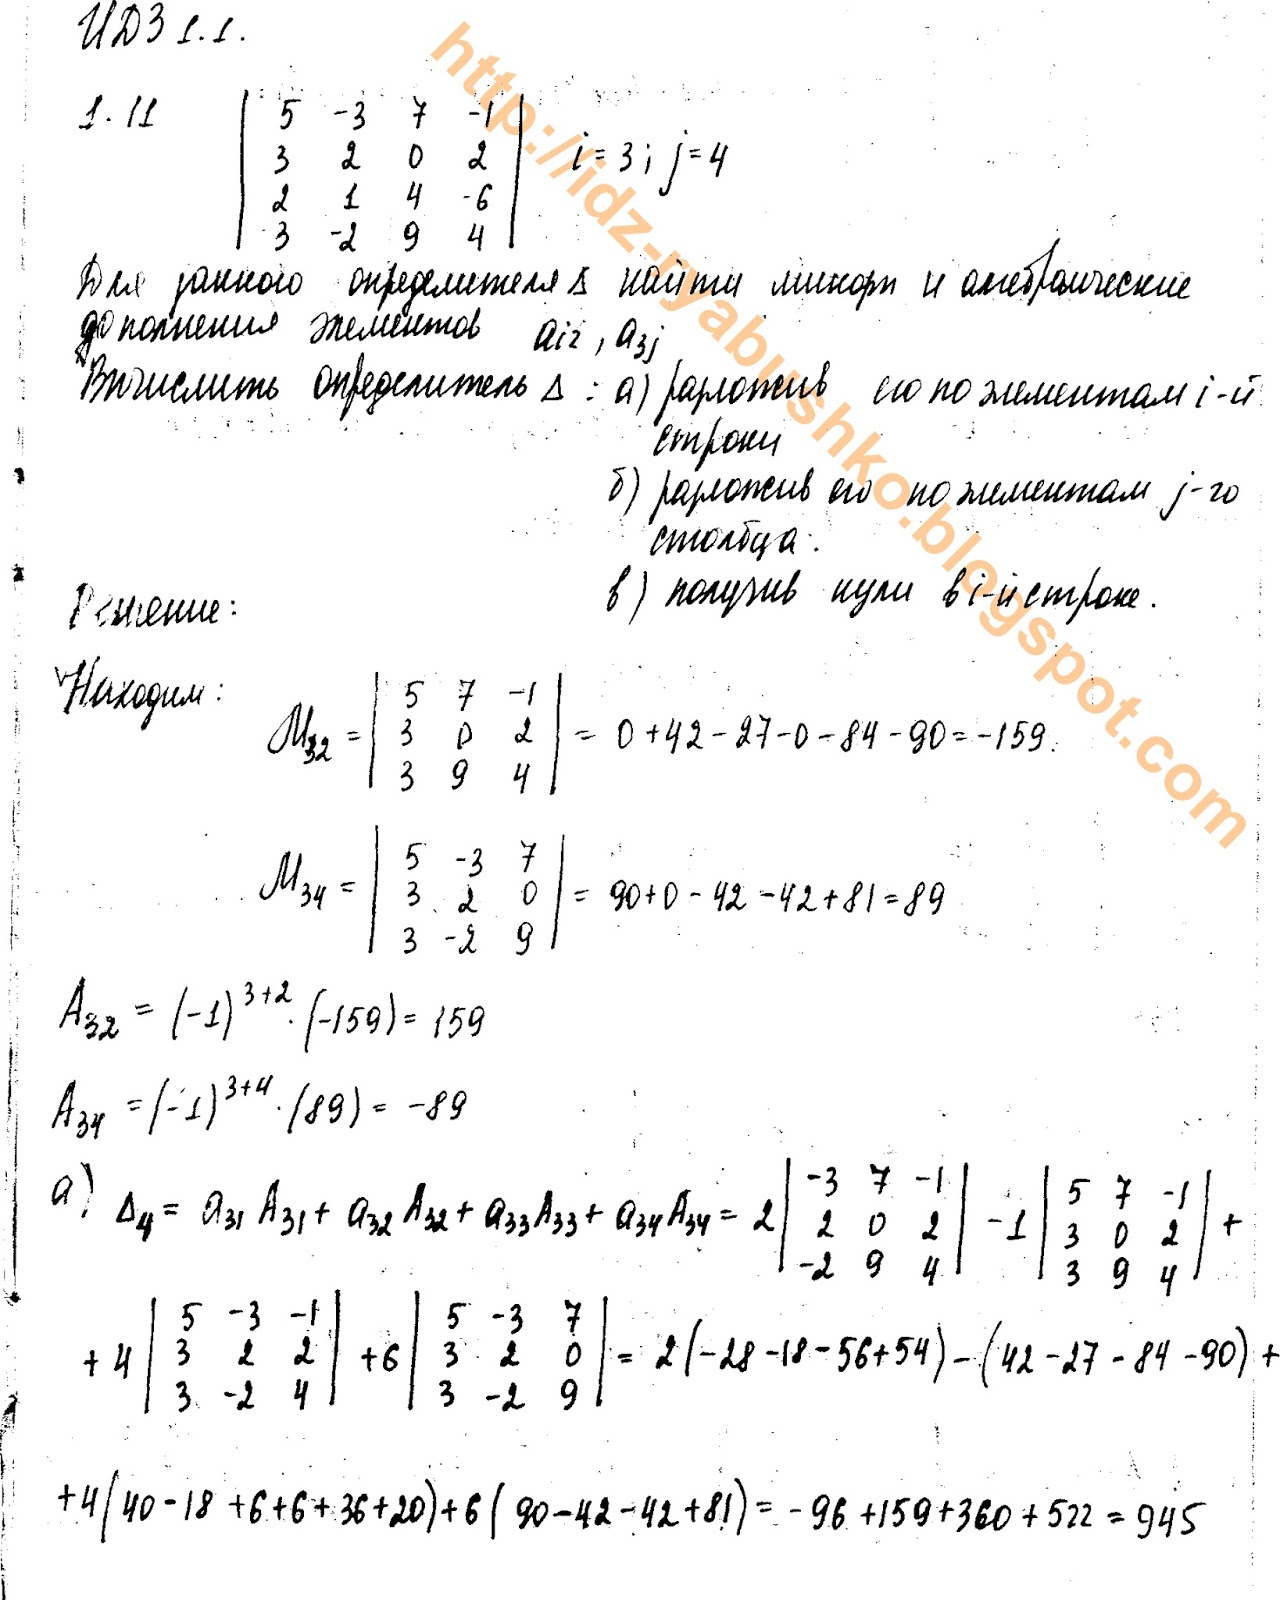 ИДЗ 1.1.
1.11
| 5 -3 7 -1 |
| 3 2 0 2 | i=3; j=4
| 2 1 4 -6 |
| 3 -2 9 4 |
Для данного определителя Δ найти миноры и алгебраические
дополнения элементов ai2, a3j
Вычислить определитель Δ: а) разложив его по элементам i-й
строки
б) разложив его по элементам j-го
столбца.
в) получив нули в i-й строке.
Решение:
Находим:
M32 = | 5 7 -1 | 3 0 2 | 3 9 4 | = 0+42-27-0-84-90=-159.
M34 = | 5 -3 7 | 3 2 0 | 3 -2 9 | = 90+0-42-42+81=89
A32 = (-1)^3+2 · (-159) = 159
A34 = (-1)^3+4 · (89) = -89
а) Δ4 = a31 A31 + a32 A32 + a33 A33 + a34 A34 = 2 | -3 7 -1 | 2 0 2 | -2 9 4 | -1 | 5 7 -1 | 3 0 2 | 3 9 4 | +
+4 | 5 -3 -1 | 3 2 2 | 3 -2 4 | +6 | 5 -3 7 | 3 2 0 | 3 -2 9 | = 2(-28-18-56+54)-(42-27-84-90)+
+4(40-18+6+6+36+20)+6(90-42-42+81)=-96+159+360+522=945
http://idz-ryabushko.blogspot.com